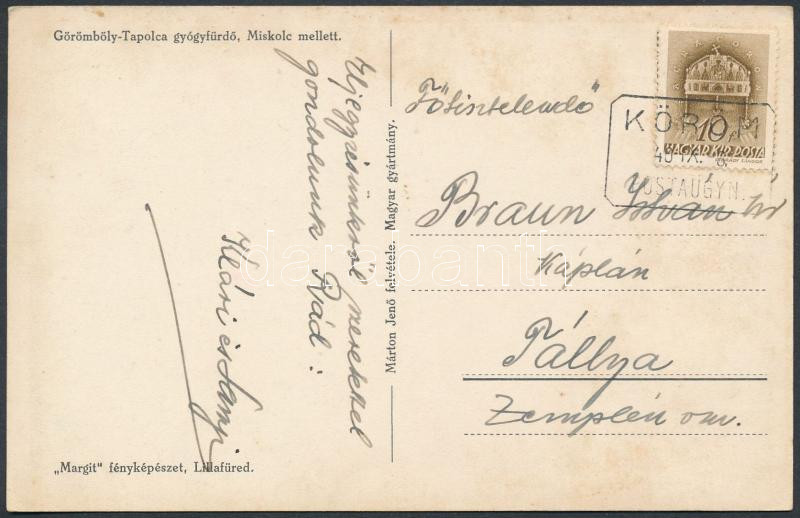 Görömböly-Tapolca gyógyfürdő, Miskolc mellett.
Eljegyzésünkről szeretettel
gondolunk Rád:
Klári és Samyi
„Margit" fényképészet, Lillafüred.
Márton Jenő felvétele. Magyar gyártmány.
MAGYAR KIR. POSTA
KÖRÖM
POSTAÜGYN.
Főtisztelendő
Braun István úr
Káplán
Tállya
Zemplén vm.
darabanth